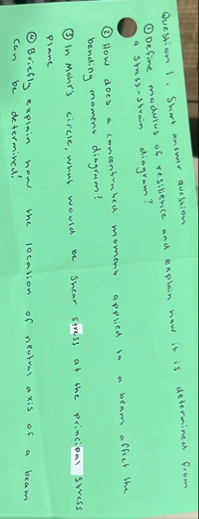 Question 1. Short answer question
① Define modulus of resilience and explain how it is determined from
a stress-strain diagram?
② How does a concentrated moment applied to a beam affect the
bending moment diagram?
③ In Mohr's circle, what would be shear stress at the principal stress
plane
④ Briefly explain how the location of neutral axis of a beam
can be determined?